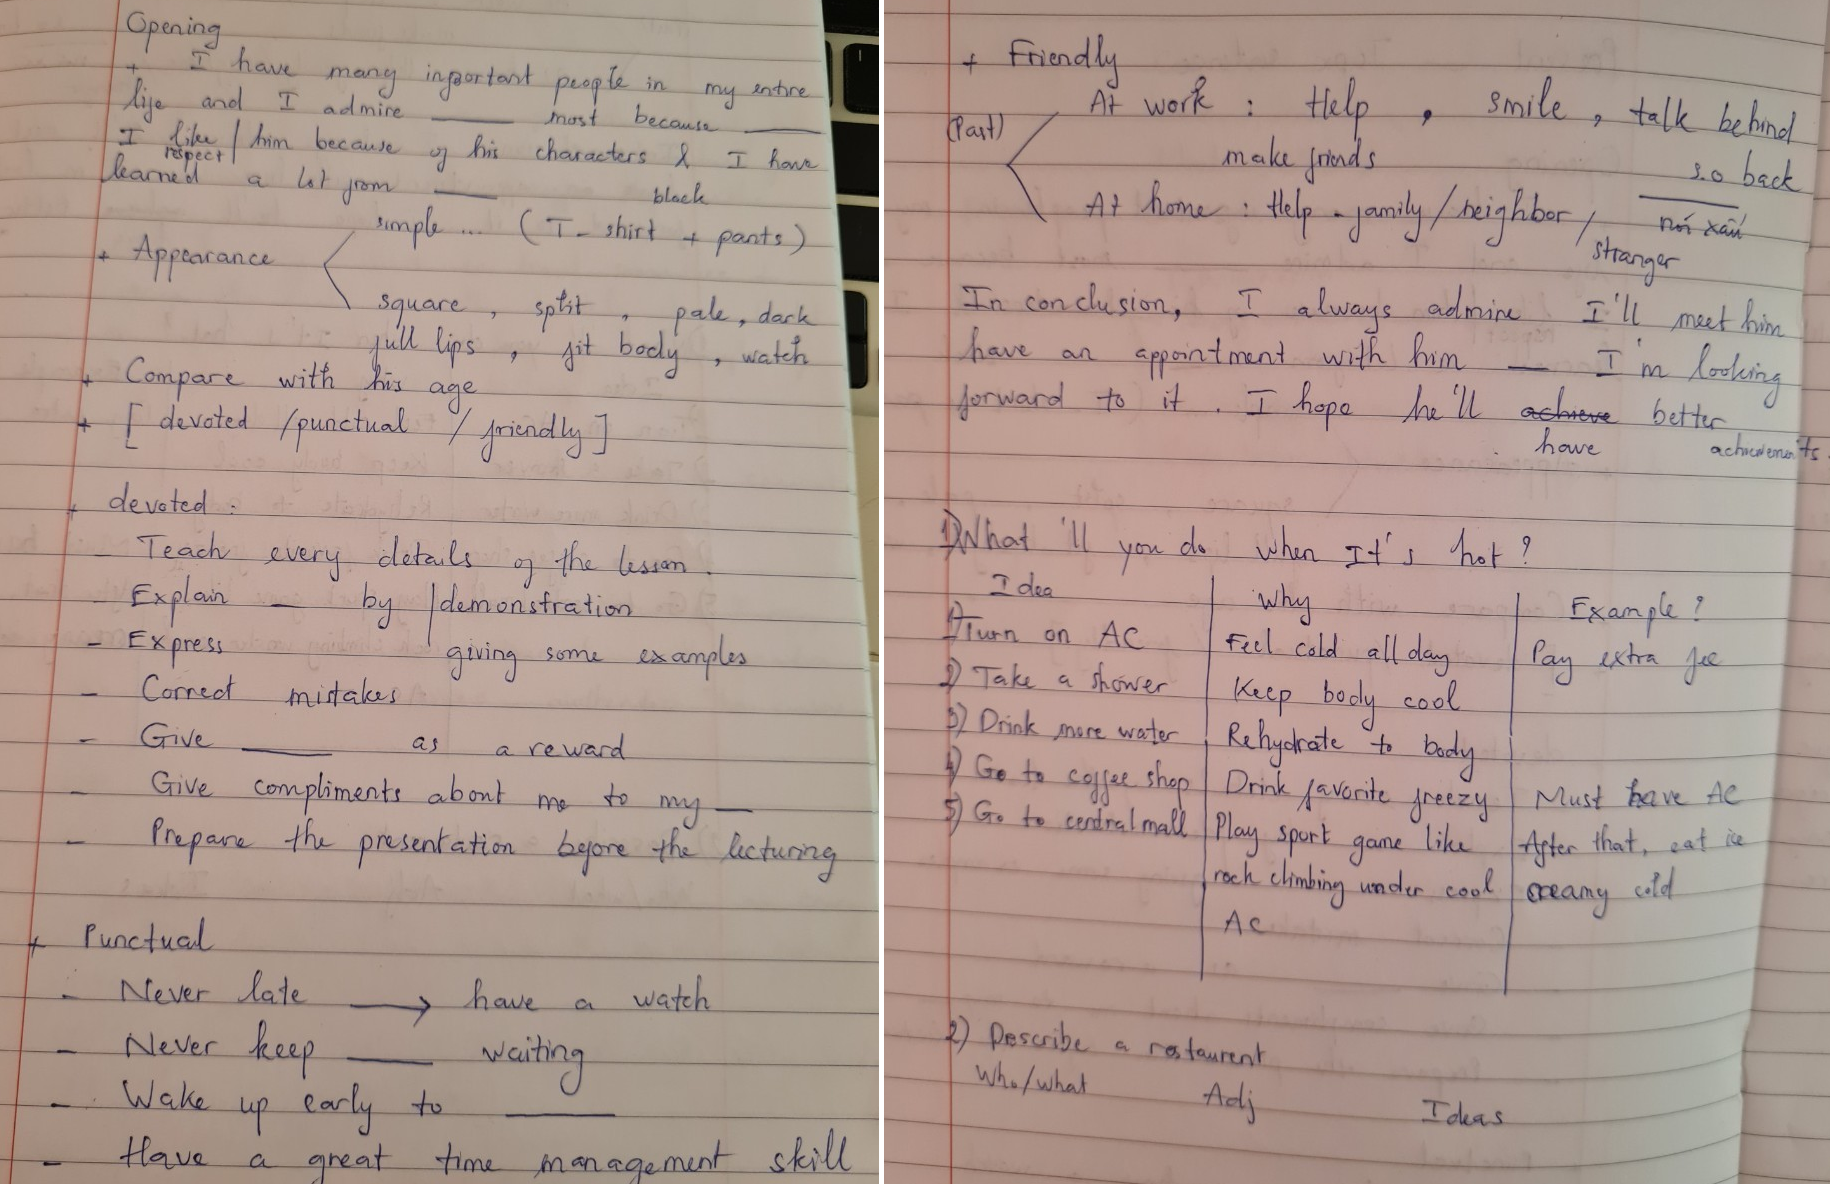 Opening
+ I have many important people in my entire
life and I admire ____ most because ____
I like / him because of his characters & I have
respect
learned a lot from ____
black
simple ... ( T-shirt + pants )
+ Appearance
square , split , pale , dark
full lips , fit body , watch
+ Compare with his age
+ [ devoted / punctual / friendly ]
+ devoted :
- Teach every details of the lesson .
- Explain __ by | demonstration
- Express giving some examples
- Correct mistakes
- Give ____ as a reward
- Give compliments about me to my __
- Prepare the presentation before the lecturing
+ Punctual
- Never late → have a watch
- Never keep ____ waiting
- Wake up early to ____
- Have a great time management skill
+ Friendly
(Past)
At work : Help , smile , talk behind
make friends s.o back
At home : Help - family / neighbor / nói xấu
stranger
In conclusion, I always admire I'll meet him
have an appointment with him __ I'm looking
forward to it . I hope he'll achieve better
have achievements .
1) What 'll you do when It's hot ?
Idea Why Example ?
1) Turn on AC Feel cold all day Pay extra fee
2) Take a shower Keep body cool
3) Drink more water Rehydrate to body
4) Go to coffee shop Drink favorite freezy Must have AC
5) Go to central mall Play sport game like After that, eat ice
rock climbing under cool creamy cold
AC
2) Describe a restaurent
Who/what Adj Ideas